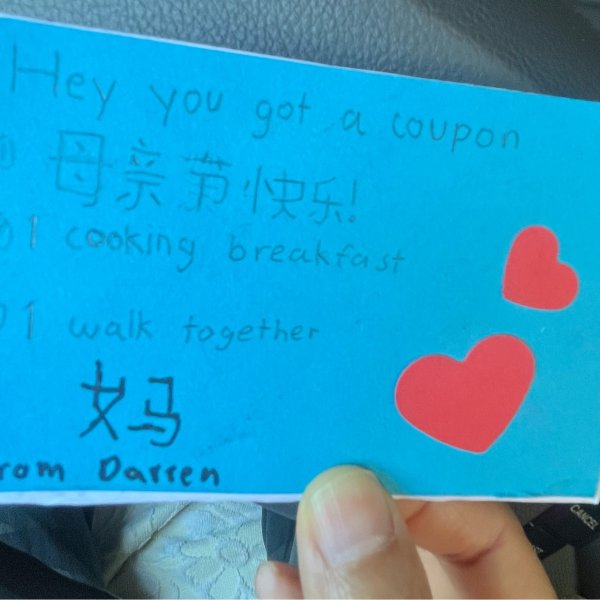 Hey you got a coupon
母亲节快乐!
1 cooking breakfast
1 walk together
妈
rom Darren
CANCEL